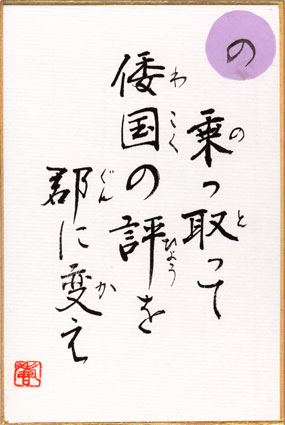 の
乗っ取って
倭国の評を
郡に変え
の
と
わ
こく
ひょう
ぐん
か